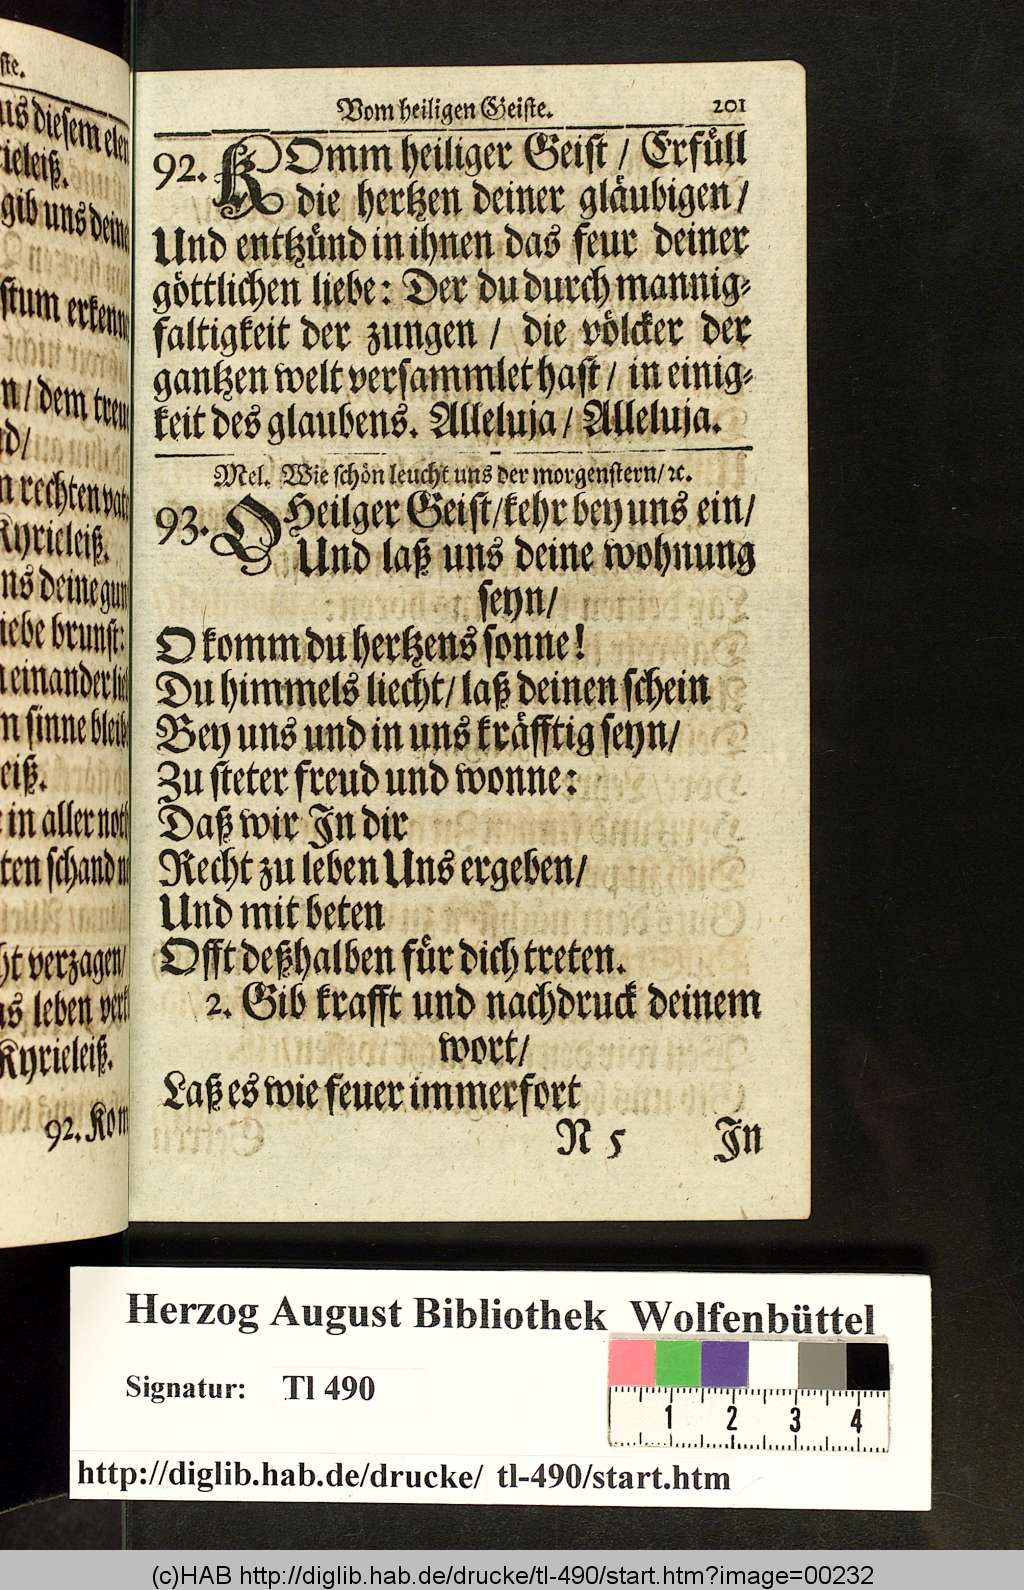 ste.
us diesem elen
rieleiß.
gib uns deine
stum erkenne
n / dem treue
nd/
n rechten vate
Kyrieleiß.
ns deine gun
iebe brunst:
einander lie
n sinne bleibe
eiß.
in aller noth
ten schand no
ht verzagen/
as leben verk
Kyrieleiß.
92. Kom
Vom heiligen Geiste. 201
92. KOmm heiliger Geist / Erfüll
die hertzen deiner gläubigen /
Und entzünd in ihnen das feur deiner
göttlichen liebe: Der du durch mannig-
faltigkeit der zungen / die völcker der
gantzen welt versammlet hast / in einig-
keit des glaubens. Alleluja / Alleluja.
Mel. Wie schön leucht uns der morgenstern/ ꝛc.
93. O Heilger Geist/ kehr bey uns ein/
Und laß uns deine wohnung
seyn/
O komm du hertzens sonne!
Du himmels liecht/ laß deinen schein
Bey uns und in uns kräfftig seyn/
Zu steter freud und wonne:
Daß wir In dir
Recht zu leben Uns ergeben/
Und mit beten
Offt deßhalben für dich treten.
2. Gib krafft und nachdruck deinem
wort/
Laß es wie feuer immerfort
N 5 In
Herzog August Bibliothek Wolfenbüttel
Signatur: Tl 490
1 2 3 4
http://diglib.hab.de/drucke/ tl-490/start.htm
(c)HAB http://diglib.hab.de/drucke/tl-490/start.htm?image=00232